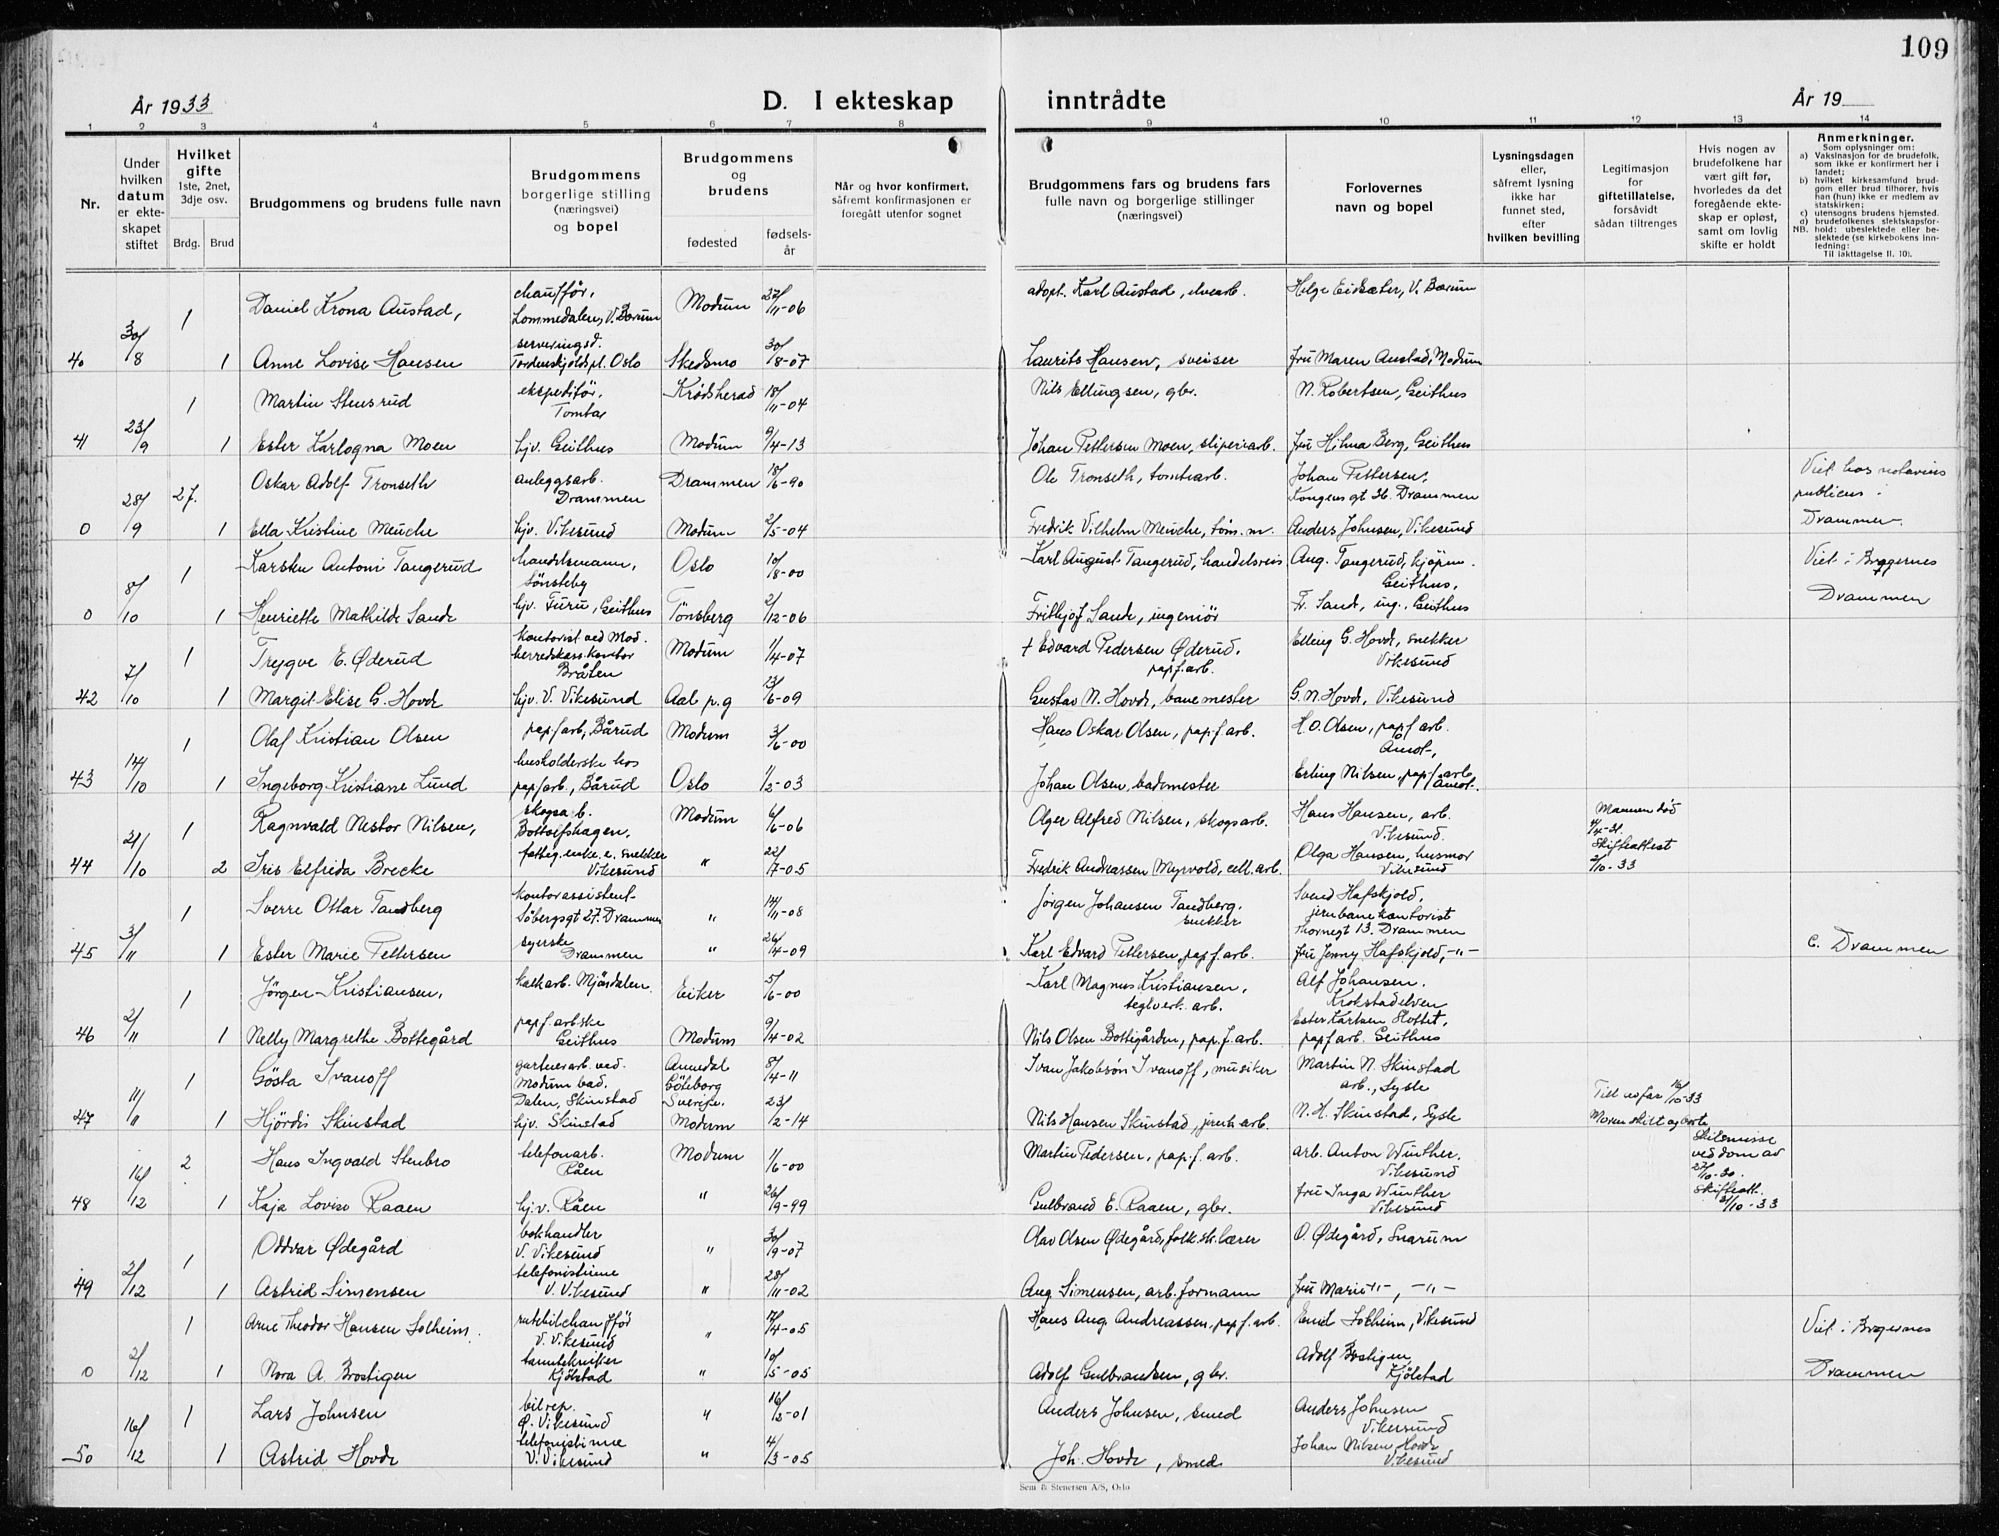 109
År 1933
D. I ekteskap inntrådte
År 19
1 2 3 4 5 6 7 8 9 10 11 12 13 14
Nr.
Under hvilken datum er ekteskapet stiftet
Hvilket gifte
1ste, 2net, 3dje osv.
Brdg. Brud
Brudgommens og brudens fulle navn
Brudgommens borgerlige stilling (næringsvei) og bopel
Brudgommens og brudens
fødested
fødselsår
Når og hvor konfirmert, såfremt konfirmasjonen er foregått utenfor sognet
Brudgommens fars og brudens fars fulle navn og borgerlige stillinger (næringsvei)
Forlovernes navn og bopel
Lysningsdagen eller, såfremt lysning ikke har funnet sted, efter hvilken bevilling
Legitimasjon for giftetillatelse, forsåvidt sådan tiltrenges
Hvis nogen av brudefolkene har vært gift før, hvorledes da det foregående ekteskap er opløst, samt om lovlig skifte er holdt
Anmerkninger.
Som oplysninger om:
a) Vaksinasjon for de brudefolk, som ikke er konfirmert her i landet;
b) hvilket kirkesamfund brudgom eller brud tilhører, hvis han (hun) ikke er medlem av statskirken;
c) utensogns brudens hjemsted.
d) brudefolkenes slektskapsforhold: ubeslektede eller beslektede (se kirkebokens innledning:
NB.
Til iakttagelse II. 10).
1 Daniel Krona Austad, chauffør, Lommedalen, V. Bærum Modum 27/11-06 adopt. Karl Austad, elvearb. Helge Eidsæter, V. Bærum
40 30/8 1 Anne Lovise Hansen serveringsd. Tordenskjoldspl. Oslo Skedsmo 30/8-07 Laurits Hansen, sveiser fru Maren Austad, Modum
1 Martin Stensrud ekspeditør, Tomtar Krødsherad 18/11-04 Nils Ellingsen, gbr. N. Robertsen, Geithus
41 23/9 1 Ester Karlogna Moen hjv. Geithus Modum 9/4-13 Johan Pettersen Moen, sliperiarb. fru Hilma Berg, Geithus
27. Oskar Adolf Tronseth anleggsarb. Drammen Drammen 18/6-90 Ole Tronseth, tomtearb. Johan Pettersen, Kongensgt 26. Drammen Viet hos notarius publicus i
0 28/9 1 Ella Kristine Meuche hjv. Vikesund Modum 2/5-04 Fredrik Vilhelm Meuche, tøm. m. Anders Johnsen, Vikesund Drammen
1 Karsten Antoni Tangerud handelsmann, Sønsteby Oslo 10/8-00 Karl August Tangerud, handelsreis Aug. Tangerud, kjøpm. Geithus. Viet i Bragernes
0 8/10 1 Henriette Mathilde Sande hjv. Furu, Geithus Tønsberg 2/12-06 Frithjof Sande, ingeniør Fr. Sande, ing., Geithus Drammen
1 Trygve E. Øderud kontorist ved Mod. herredskass. kontor Bråten Modum 1/4-07 + Edvard Pedersen Øderud, papf. arb. Elling G. Hovde, snekker Vikesund
42 7/10 1 Margit Elise G. Hovde hjv. V. Vikesund Aal p.g 13/6-09 Gustav N. Hovde, banemester G. N. Hovde, Vikesund
1 Olaf Kristian Olsen papf arb, Bårud Modum 3/6-00 Hans Oskar Olsen, papf arb. H. O. Olsen, papf arb. Åmot,
43 14/10 1 Ingeborg Kristiane Lund husholderske hos papf arb., Bårud Oslo 1/2-03 Johan Olsen, bademester Erling Nilsen, papf arb. Åmot.
1 Ragnvald Nestor Nilsen, skogsarb. Bottolfshagen. Modum 6/6-06 Olger Alfred Nilsen, skogsarb. Hans Hansen, arb. Vikesund. Mannen død 4/4-31. Skifteattest 2/10-33
44 21/10 2 Iris Elfrida Brecke fattig. enke e. snekker Vikesund " 22/7-05 Fredrik Andreassen Myrvold, cell. arb. Olga Hansen, husmor Vikesund
1 Sverre Ottar Tandberg kontorassistent Söbergsgt 27. Drammen " 14/11-08 Jørgen Johansen Tandberg, snekker Svend Hafskjold, jernbanekontorist Thornegt 13. Drammen
45 3/11 1 Ester Marie Pettersen syerske Drammen " 26/4-09 Karl Edvard Pettersen, papf. arb. fru Jenny Hafskjold, -"- c. Drammen
1 Jörgen Kristiansen, kalkarb. Mjöndalen. Eiker 5/6-00 Karl Magnus Kristiansen, teglverk. arb. Alf Johansen. Krokstadelven
46 2/11 1 Nelly Margrethe Bottegård papf. arbske Geithus Modum 9/4-02 Nils Olsen Bottegården, pap. f. arb. Ester Karlsen Slottet, papf arb. Geithus
1 Gösta Ivanoff gartnerarb. ved Modum bad. Dalen, Skinstad Annedal Göteborg Sverige. 8/4-11 Ivan Jakobsön Ivanoff, musiker Martin N. Skinstad arb., Sysle
47 11/11 1 Hjördis Skinstad hjv. Skinstad Modum 23/12-14 Nils Hansen Skinstad, jernb. arb. N. H. Skinstad, Sysle Till. av far 12/10-33 Moren skilt og borte
2 Hans Ingvald Stenbro telefonarb. Råen Modum 1/6-00 Martin Pedersen, pap. f. arb. arb. Anton Winther. Vikesund Skilsmisse ved dom av 27/10-30. Skifteatt. 31/10-33
48 16/12 1 Kaja Lovise Raaen hj.v. Råen " 26/9-99 Gulbrand E. Raaen, gbr. fru Inga Winther Vikesund
1 Oddvar Ødegård bokhandler V. Vikesund " 30/9-07 Olav Olsen Ødegård, folk. sk. lærer O. Ødegård, Snarum
49 2/12 1 Astrid Simensen telefonistinne V. Vikesund " 28/11-02 Aug. Simensen, arb. formann fru Marie -"-, -"-
1 Arne Theodor Hansen Solheim. rutebilchauffør V. Vikesund " 17/4-05 Hans Aug. Andreassen, papf. arb. Emil Solheim, Vikesund Viet i Bragernes
0 2/12 1 Nora A. Brostigen tanntekniker Kjölstad " 10/5-05 Adolf Gulbrandsen, gbr. Adolf Brostigen Kjölstad Drammen
1 Lars Johnsen bilrep. Ø. Vikesund " 16/2-01 Anders Johnsen, smed Anders Johnsen Vikersund
50 16/12 1 Astrid Hovde telefonistinne V. Vikesund " 4/3-05 Joh. Hovde, smed Johan Nilsen Hovde Vikesund
Sem & Stenersen A/S, Oslo